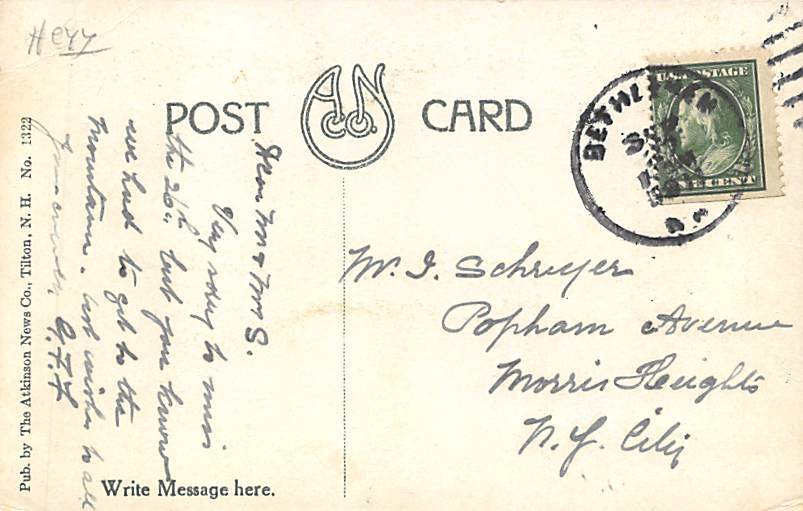 POST CARD
A N Co.
U.S. POSTAGE
CENT
BETHLEHEM
N.H.
Dear Mr & Mrs S.
Very sorry to miss
the 26th but you know
we had to get to the
Mountains. best wishes to all
G.F.F.
Mr. I. Schreyer
Popham Avenue
Morris Heights
N.Y. City
Write Message here.
Pub. by The Atkinson News Co., Tilton, N. H. No. 1322